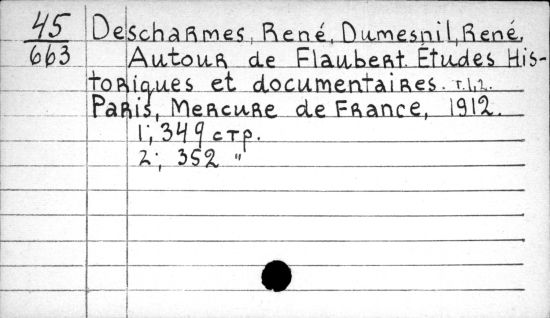 45 Descharmes, René, Dumesnil, René.
663 Autour de Flaubert. Études His-
toriques et documentaires. т.1,2.
Paris, Mercure de France, 1912.
1; 349 стр.
2; 352 "